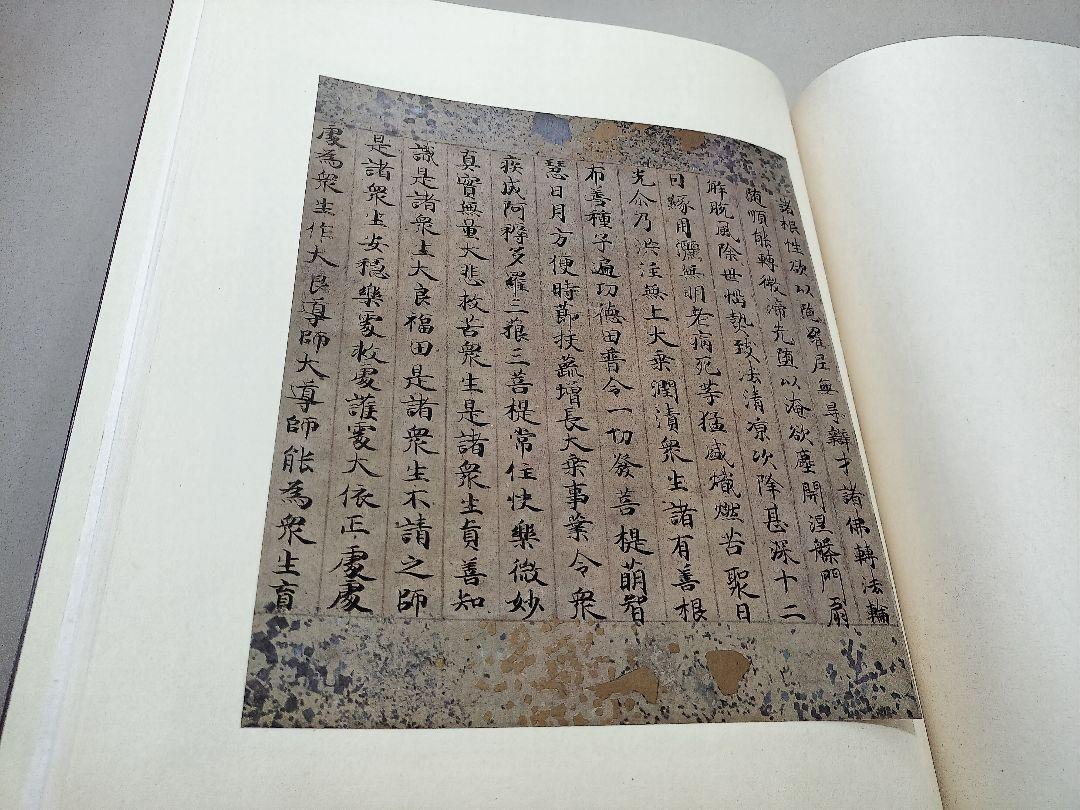 諸根性欲以陁羅尼無㝵辯才諸佛轉法輪
随順能轉微渧先堕以淹欲塵開涅槃門扇
解脫風除世惱熱致法清凉次降甚深十二
因緣用灑無明老病死等猛盛熾燃苦聚日
光尒乃洪注無上大乘潤漬衆生諸有善根
布善種子遍功德田普令一切發菩提萌智
慧日月方便時節扶疏增長大乘事業令衆
疾成阿耨多羅三藐三菩提常住快樂微妙
真實無量大悲救苦衆生是諸衆生真善知
識是諸衆生大良福田是諸衆生不請之師
是諸衆生安穩樂處救處護處大依正處處
處為衆生作大良導師大導師能為衆生盲